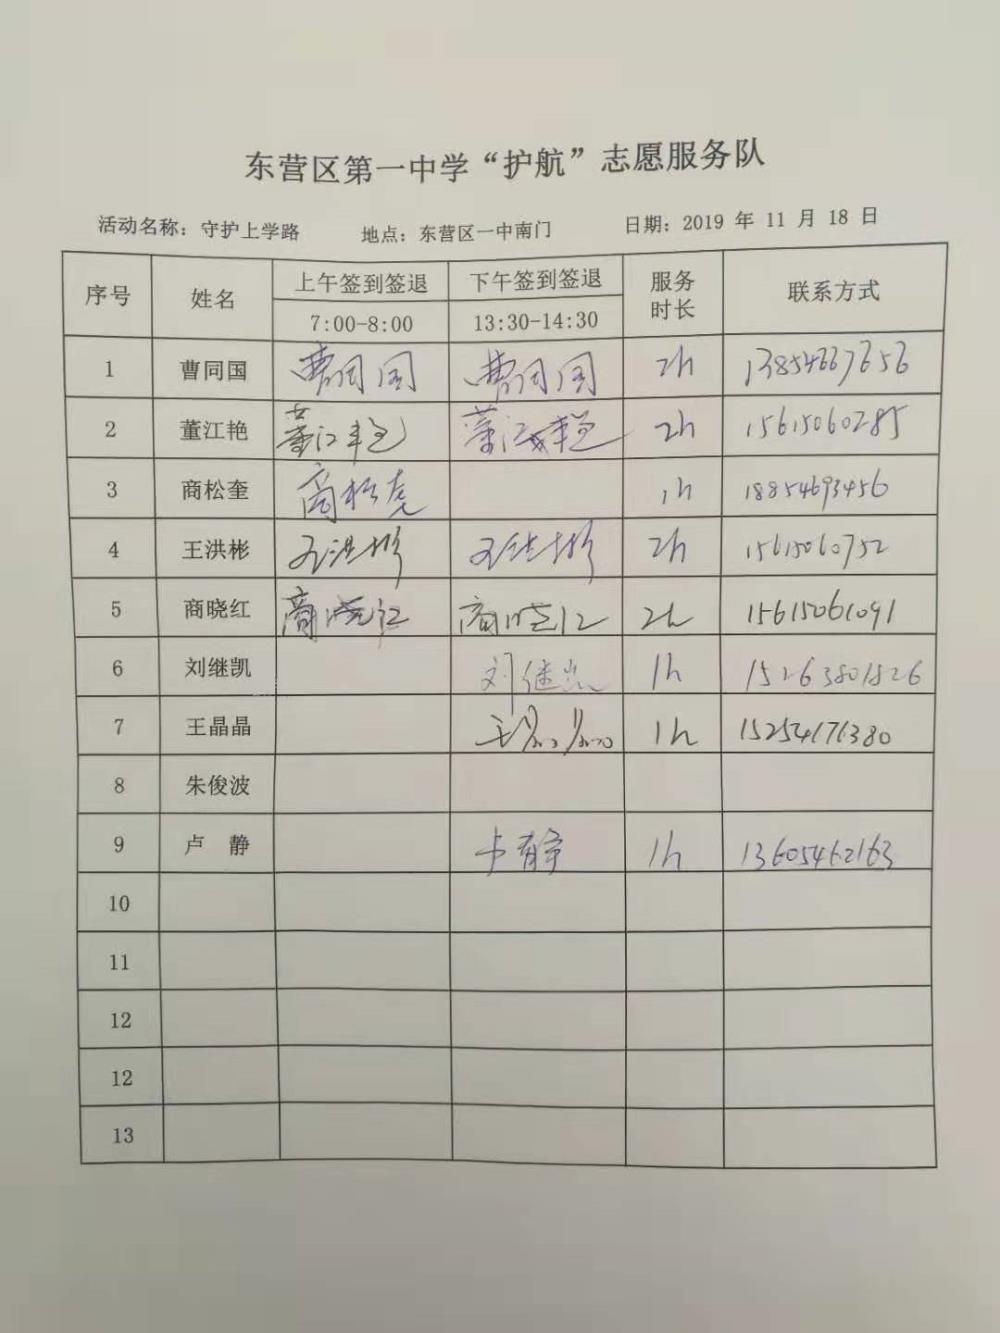 东营区第一中学“护航”志愿服务队
活动名称：守护上学路 地点：东营区一中南门 日期：2019 年 11 月 18 日
序号 姓名 上午签到签退 下午签到签退 服务时长 联系方式
7:00-8:00 13:30-14:30
1 曹同国 曹同国 曹同国 2h 13854667656
2 董江艳 董江艳 董江艳 2h 15615060285
3 商松奎 商松奎 1h 18854693456
4 王洪彬 王洪彬 王洪彬 2h 15615060752
5 商晓红 商晓红 商晓红 2h 15615061091
6 刘继凯 刘继凯 1h 15263801826
7 王晶晶 王晶晶 1h 15254176380
8 朱俊波
9 卢 静 卢静 1h 13605462163
10
11
12
12
13